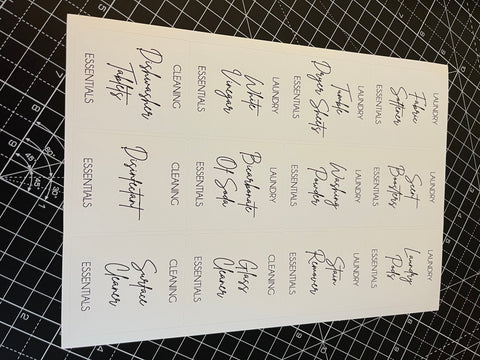 LAUNDRY
Fabric
Softener
ESSENTIALS
LAUNDRY
Scent
Boosters
ESSENTIALS
LAUNDRY
Laundry
Pods
ESSENTIALS
LAUNDRY
Tumble
Dryer Sheets
ESSENTIALS
LAUNDRY
Washing
Powder
ESSENTIALS
LAUNDRY
Stain
Remover
ESSENTIALS
LAUNDRY
White
Vinegar
ESSENTIALS
LAUNDRY
Bicarbonate
Of Soda
ESSENTIALS
CLEANING
Glass
Cleaner
ESSENTIALS
CLEANING
Dishwasher
Tablets
ESSENTIALS
CLEANING
Disinfectant
ESSENTIALS
CLEANING
Surface
Cleaner
ESSENTIALS